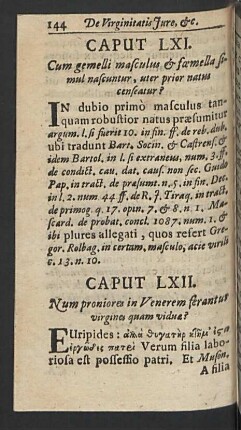 144 De Virginitatis Jure, &c.
CAPUT LXI.
Cum gemelli masculus & fœmella si-
mul nascuntur, uter prior natus
censeatur?
IN dubio primò masculus tan-
quam robustior natus præsumitur
argum. l. si fuerit 10. in fin. ff. de reb. dub.
ubi tradunt Bart. Socin. & Castrens. &
idem Bartol. in l. si extraneus, num. 3. ff.
de condict. cau. dat. caus. non sec. Guido
Pap. in tract. de præsumt. n. 5. in fin. Dec.
in l. 2. num 44 ff. de R. J. Tiraq. in tract.
de primog. q. 17. opin. 7. & 8. n. 1. Ma-
scard. de probat. concl. 1087. num. 1. &
ibi plures allegati, quos refert Gre-
gor. Rolbag. in certum, masculo, acie virili
c. 13. n. 10.
CAPUT LXII.
Num proniores in Venerem ferantur
virgines quam viduæ?
EUripides:
Verum filia labo-
riosa est possessio patri. Et Muson.
A filia